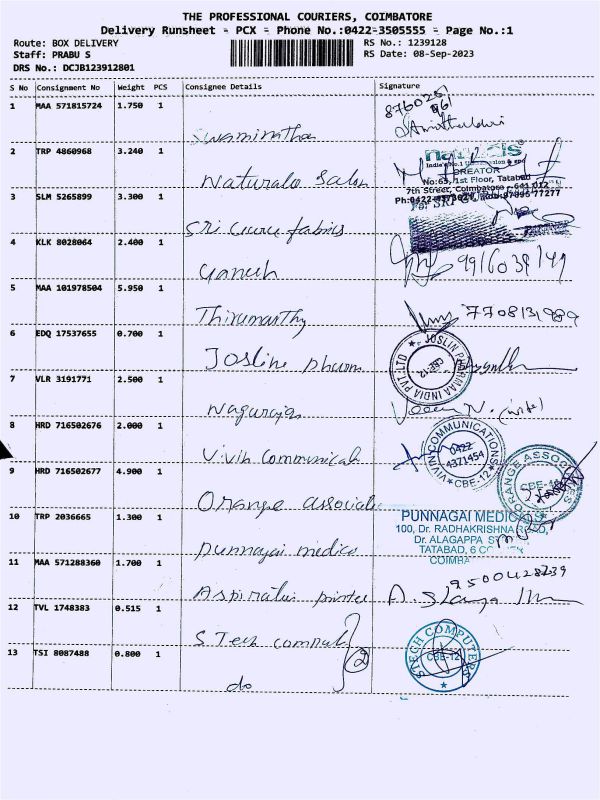 THE PROFESSIONAL COURIERS, COIMBATORE
Delivery Runsheet - PCX - Phone No.:0422-3505555 - Page No.:1
Route: BOX DELIVERY RS No.: 1239128
Staff: PRABU S RS Date: 08-Sep-2023
DRS No.: DCJB123912801
S No Consignment No Weight PCS Consignee Details Signature
1 MAA 571815724 1.750 1
Swaminathan
2 TRP 4860968 3.240 1
Naturals Salon
naturals
CREATOR
No:65, 1st Floor, Tatabad
7th Street, Coimbatore - 641 012
3 SLM 5265899 3.300 1
Sri Guru fabrics
4 KLK 8028064 2.400 1
Ganesh
5 MAA 101978504 5.950 1
Thirumurthy 7708131989
6 EDQ 17537655 0.700 1
Josline pharma
JOSLIN PHARMAA INDIA PVT.LTD
CBE-12
7 VLR 3191771 2.500 1
Nagarajan
N. (wife)
8 HRD 716502676 2.000 1
Vivin Communicat
VIVIN COMMUNICATIONS
0422
4371454
CBE-12
9 HRD 716502677 4.900 1
Orange associates
ORANGE ASSOCIATES
10 TRP 2036665 1.300 1
punnagai medics
PUNNAGAI MEDICALS
100, Dr. RADHAKRISHNA ROAD,
Dr. ALAGAPPA
TATABAD,
11 MAA 571288360 1.700 1
printer
12 TVL 1748383 0.515 1
S Tech comput
2
STECH COMPUTERS
CBE-12
13 TSI 8087488 0.800 1
do